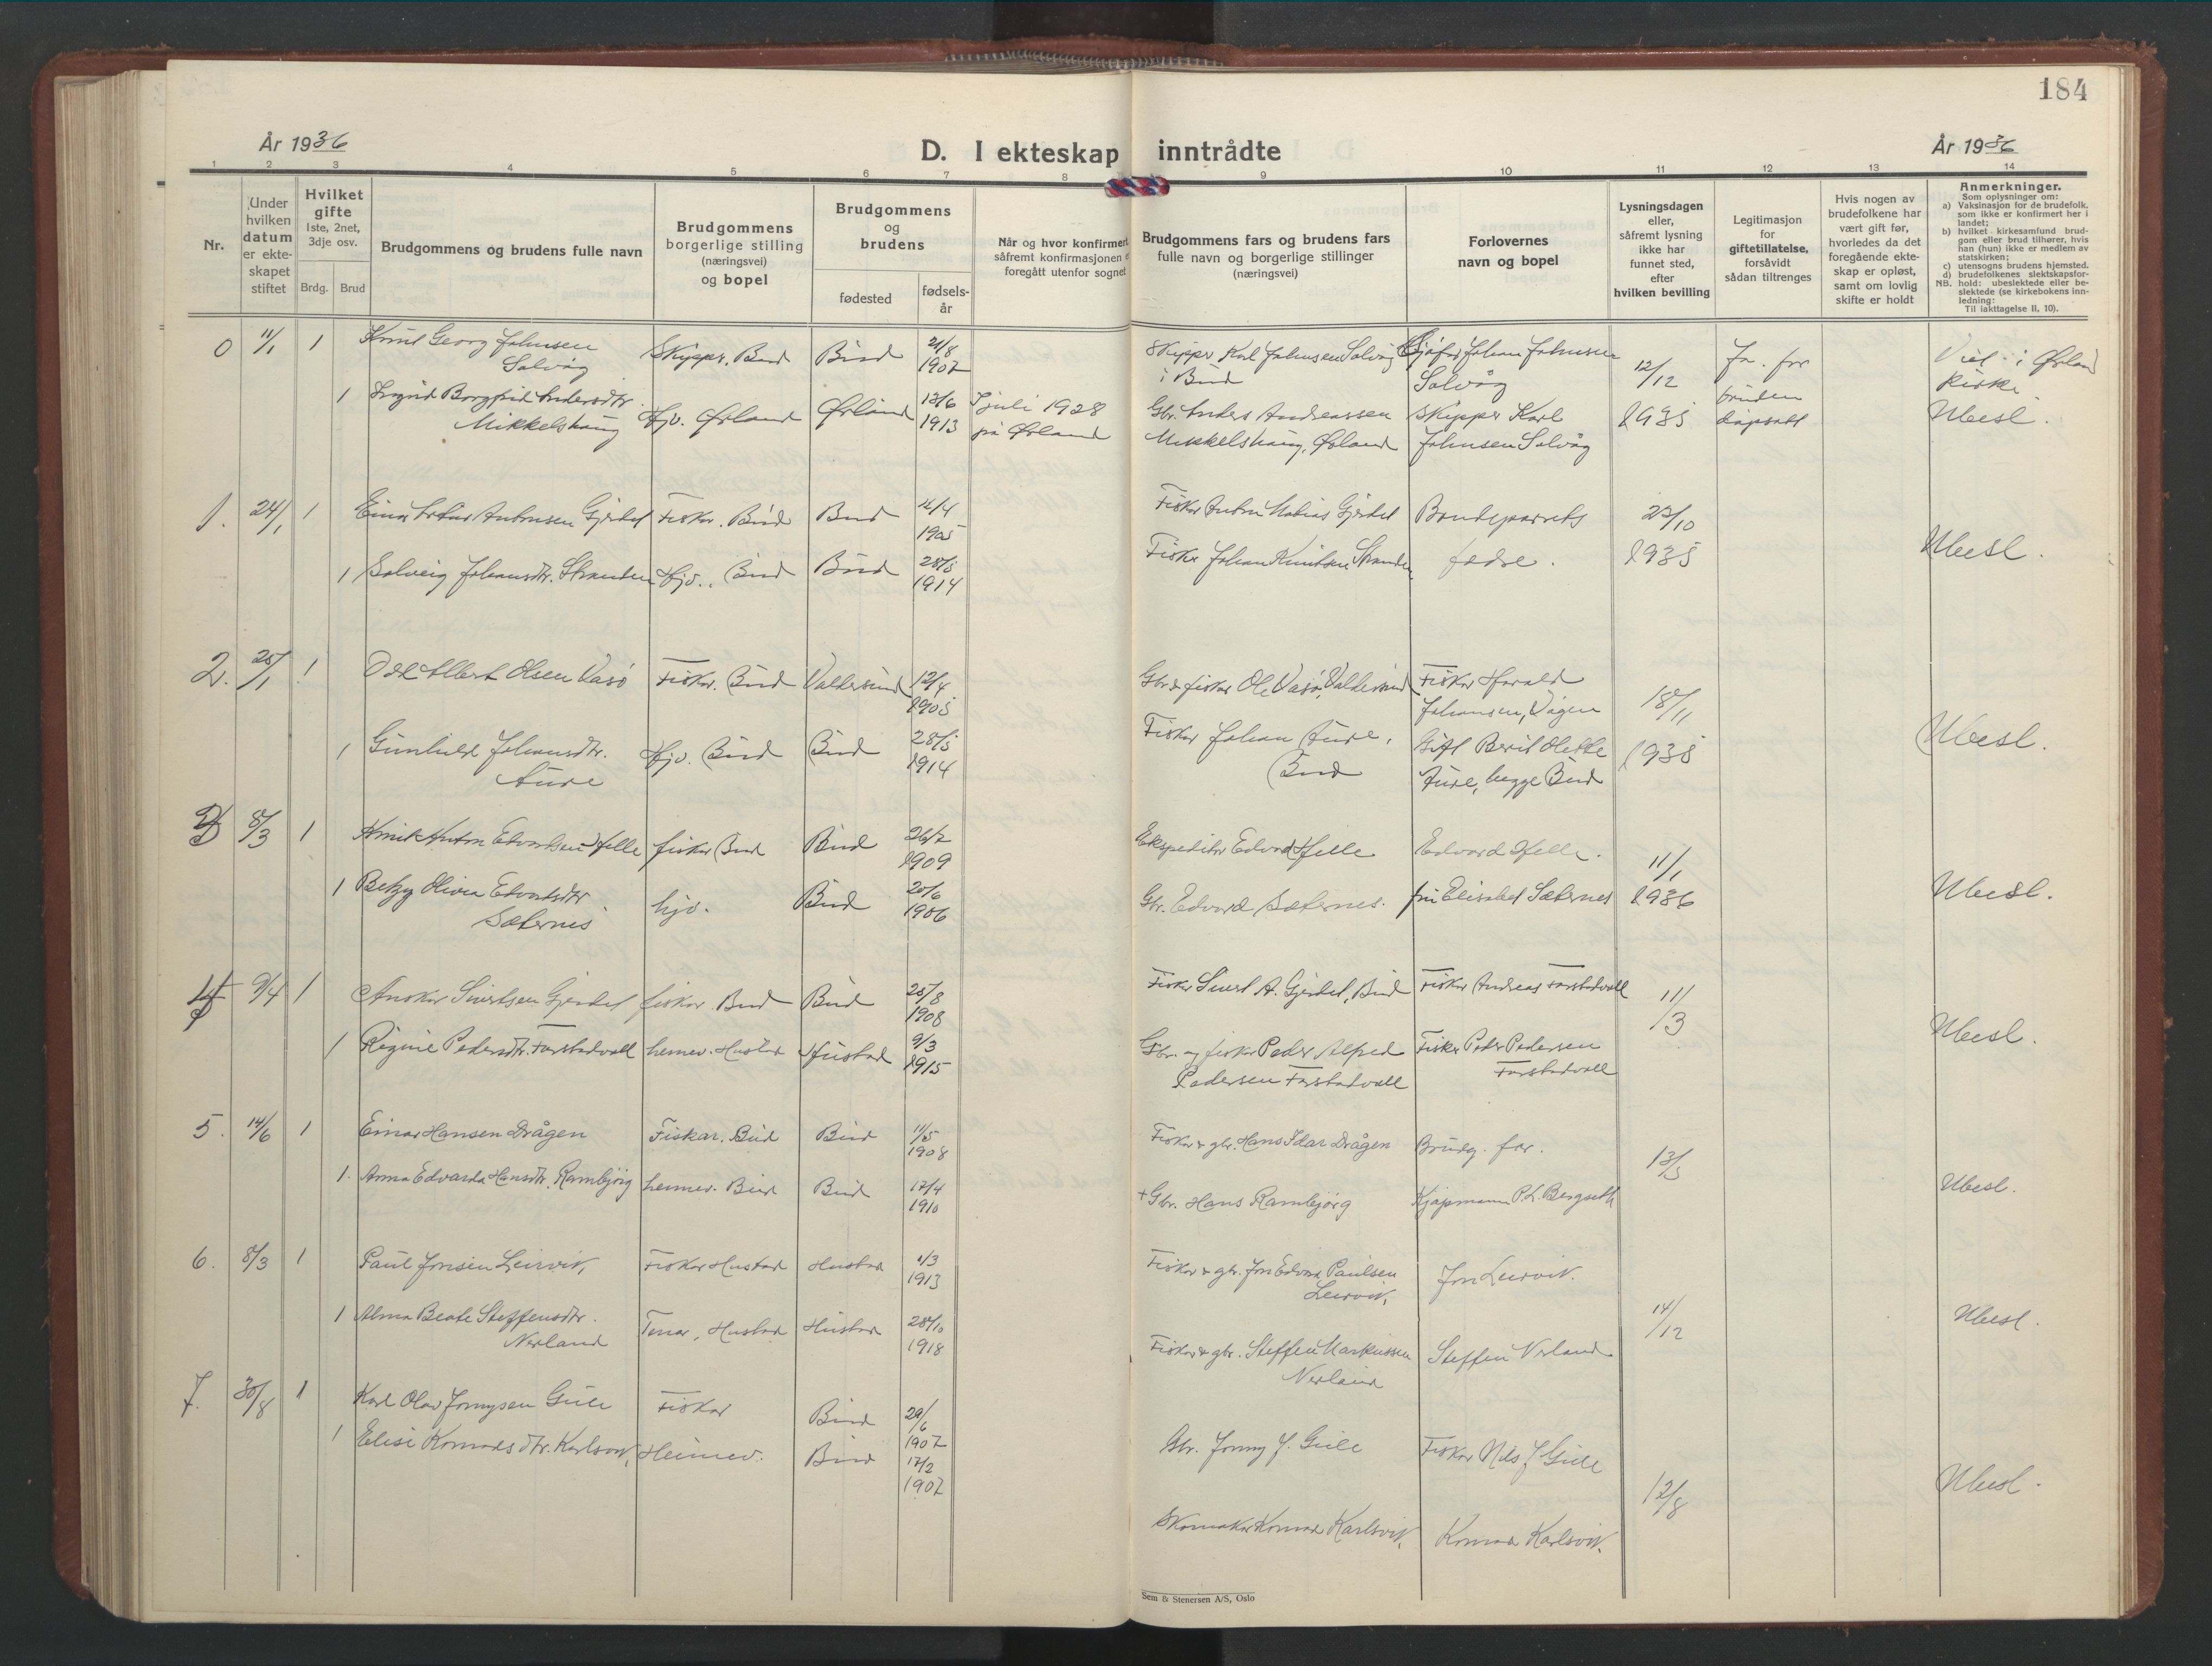 184
År 1936
D. I ekteskap inntrådte
År 1936
1 2 3 4 5 6 7 8 9 10 11 12 13 14
Nr.
Under hvilken datum er ekteskapet stiftet
Hvilket gifte 1ste, 2net, 3dje osv.
Brdg. Brud
Brudgommens og brudens fulle navn
Brudgommens borgerlige stilling (næringsvei) og bopel
Brudgommens og brudens
fødested
fødsels-år
Når og hvor konfirmert såfremt konfirmasjonen foregått utenfor sognet
Brudgommens fars og brudens fars fulle navn og borgerlige stillinger (næringsvei)
Forlovernes navn og bopel
Lysningsdagen eller, såfremt lysning ikke har funnet sted, efter hvilken bevilling
Legitimasjon for giftetillatelse, forsåvidt sådan tiltrenges
Hvis nogen av brudefolkene har vært gift før, hvorledes da det foregående ekteskap er opløst, samt om lovlig skifte er holdt
Anmerkninger.
Som oplysninger om:
a) Vaksinasjon for de brudefolk, som ikke er konfirmert her i landet;
b) hvilket kirkesamfund brudgom eller brud tilhører, hvis han (hun) ikke er medlem av statskirken;
c) utensogns brudens hjemsted.
d) brudefolkenes slektskapsfor-
NB. hold: ubeslektede eller beslektede (se kirkebokens innledning:
Til iakttagelse II, 10).
0 11/1 1 Knut Georg Johnsen Solvåg Skipper, Bud Bud 21/8 1907 Skipper Karl Johnsen Solvåg i Bud Johan Johnsen Solvåg 12/12 1935 for bruden dåpsatt i Ørland Kirke Ubesl.
1 Ingrid Borgfrid Andersdtr. Mikkelshaug Hjv. Ørland Ørland 12/6 1913 7 juli 1928 på Ørland Gbr. Anders Andreassen Mikkelshaug, Ørland Skipper Karl Johnsen Solvåg
1. 24/1 1 Einar Antonsen Gjerdet Fisker. Bud Bud 1905 Fisker Anton Matias Gjerdet Brudeparrets fedre. 23/10 1935 Ubesl.
1 Solveig Johansdtr. Stranden Hjv., Bud Bud 28/5 1914 Fisker Johan Knutsen Stranden
2. 25/1 1 Odd Albert Olsen Vasø Fisker. Bud Valdersund 12/4 1905 Gbr. & fisker Ole Vasø, Valdersund Fisker Harald Johansen, Vågen 18/11 1935 Ubesl.
1 Gunhild Johansdtr. Aure Hjv. Bud Bud 28/5 1914 Fisker Johan Aure, Bud Gift Berit Aure, begge Bud
3 8/3 1 Anton Edvardsen Helle fisker Bud Bud 26/7 1909 Ekspeditør Edvard Helle Edvard Helle. 11/1 1936 Ubesl.
1 Betzy Olivia Edvardsdtr Sæternes hjv. Bud 20/6 1906 Gbr. Edvard Sæternes. fru Elisabet Sæternes
4 9/4 1 Anskar Sivertsen Gjerdet fisker Bud Bud 25/8 1908 Fisker Sivert A. Gjerdet, Bud Fisker Andreas Farstadvoll 11/3 Ubesl.
1 Regine Pedersdtr. Farstadvoll hemev. Hustad Hustad 9/3 1915 Gbr. og fisker Peder Alfred Pedersen Farstadvoll Fisker Peder Pedersen Farstadvoll
5. 14/6 1 Einar Hansen Drågen Fiskar. Bud Bud 11/5 1908 Fisker & gbr. Hans Idar Drågen Brudg. far. 13/5 Ubesl.
1. Anna Edvarda Hansdtr. Rambjørg hemev. Bud Bud 17/4 1910 + Gbr. Hans Rambjørg Kjøpmann P. L. Bergseth
6. 8/3 1 Paul Jonsen Leirvik, Fiskar Hustad Hustad 1/3 1913 Fiskar & gbr. Jon Edvard Paulsen Leirvik, Jon Leirvik. 14/12 Ubesl.
1 Alma Beate Steffensdtr. Nerland Tenar, Hustad Hustad 28/10 1918 Fiskar & gbr. Steffen Markussen Nerland Steffen Nerland
7. 30/8 1 Karl Olav Jonnysen Gule Fiskar Bud 29/6 1907 Gbr. Jonny J. Gule Fiskar Nils J Gule 12/8 Ubesl.
1 Elise Konradsdtr. Karlsvik, Heimev. Bud 17/2 1907 Skomakar Konrad Karlsvik, Konrad Karlsvik.
Sem & Stenersen A/S, Oslo